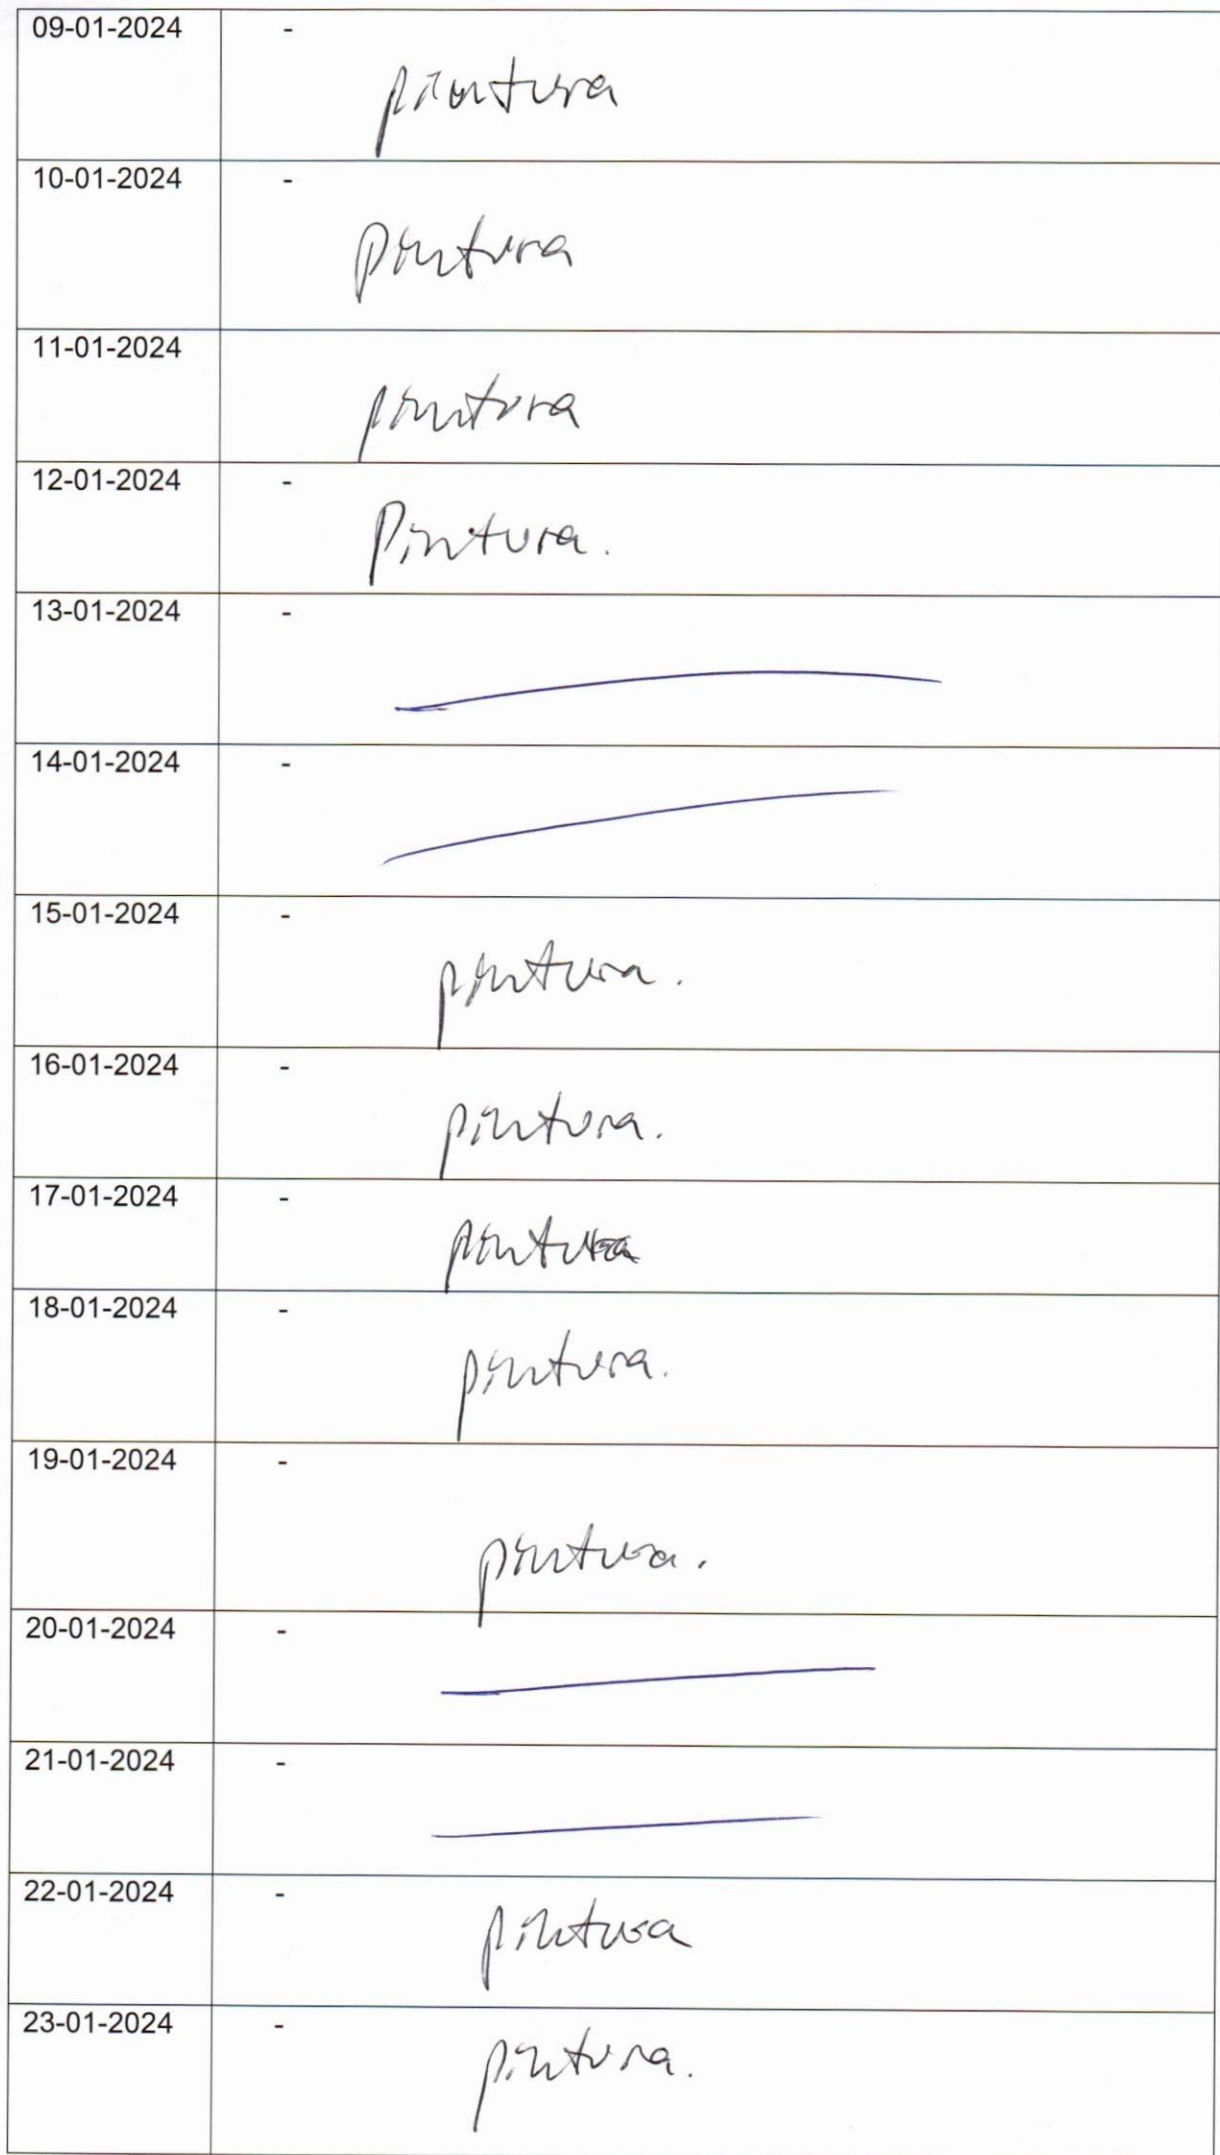 09-01-2024 -
pintura
10-01-2024 -
pintura
11-01-2024
pintura
12-01-2024 -
Pintura.
13-01-2024 -
14-01-2024 -
15-01-2024 -
pintura.
16-01-2024 -
pintura.
17-01-2024 -
pintura
18-01-2024 -
pintura.
19-01-2024 -
pintura.
20-01-2024 -
21-01-2024 -
22-01-2024 -
pintura
23-01-2024 -
pintura.